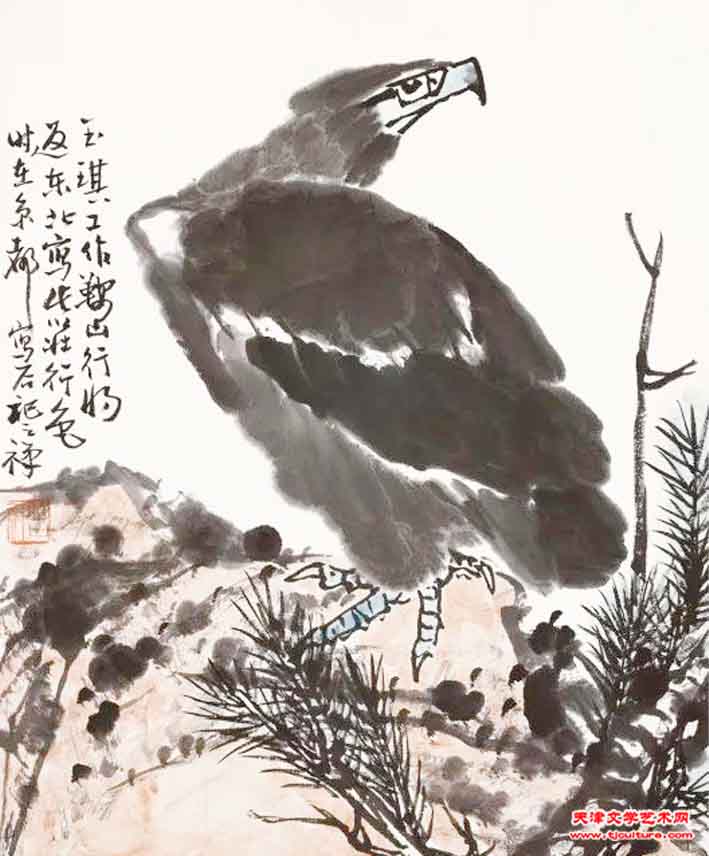 玉琪工作鞍山行将
返东北写此以壮行色
时在京都写石记之禅
天津文学艺术网
www.tjculture.com